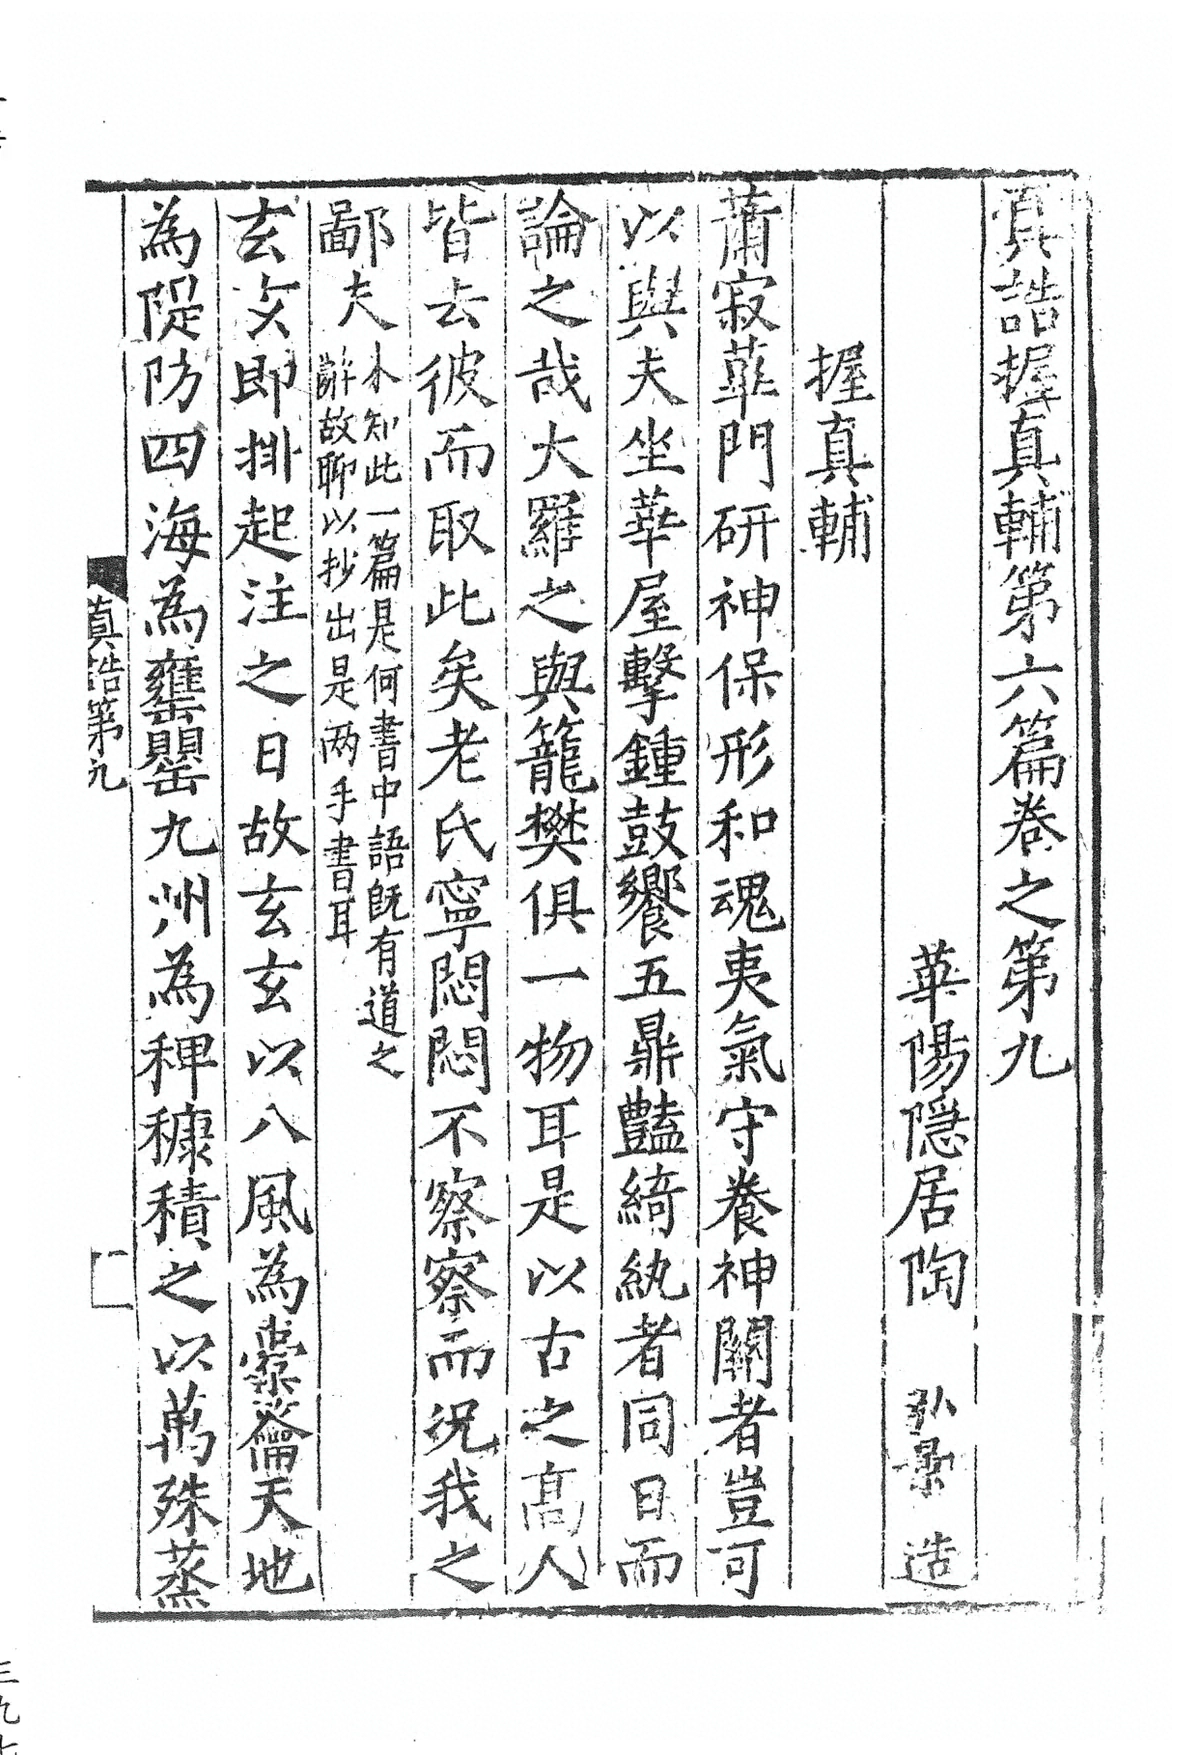 真誥握真輔第六篇卷之第九
華陽隱居陶 弘景 造
握真輔
蕭寂蓽門研神保形和魂夷氣守養神關者豈可
以與夫坐華屋擊鍾鼓饗五鼎豔綺紈者同日而
論之哉大羅之與籠樊俱一物耳是以古之高人
皆去彼而取此矣老氏寧悶悶不察察而況我之
鄙夫
不知此一篇是何書中語既有道之
辭故聊以抄出是两手書耳
玄文即掛起注之日故玄玄以八風為橐籥天地
為隄防四海為甕罌九州為稗糠積之以萬殊蒸
真誥第九